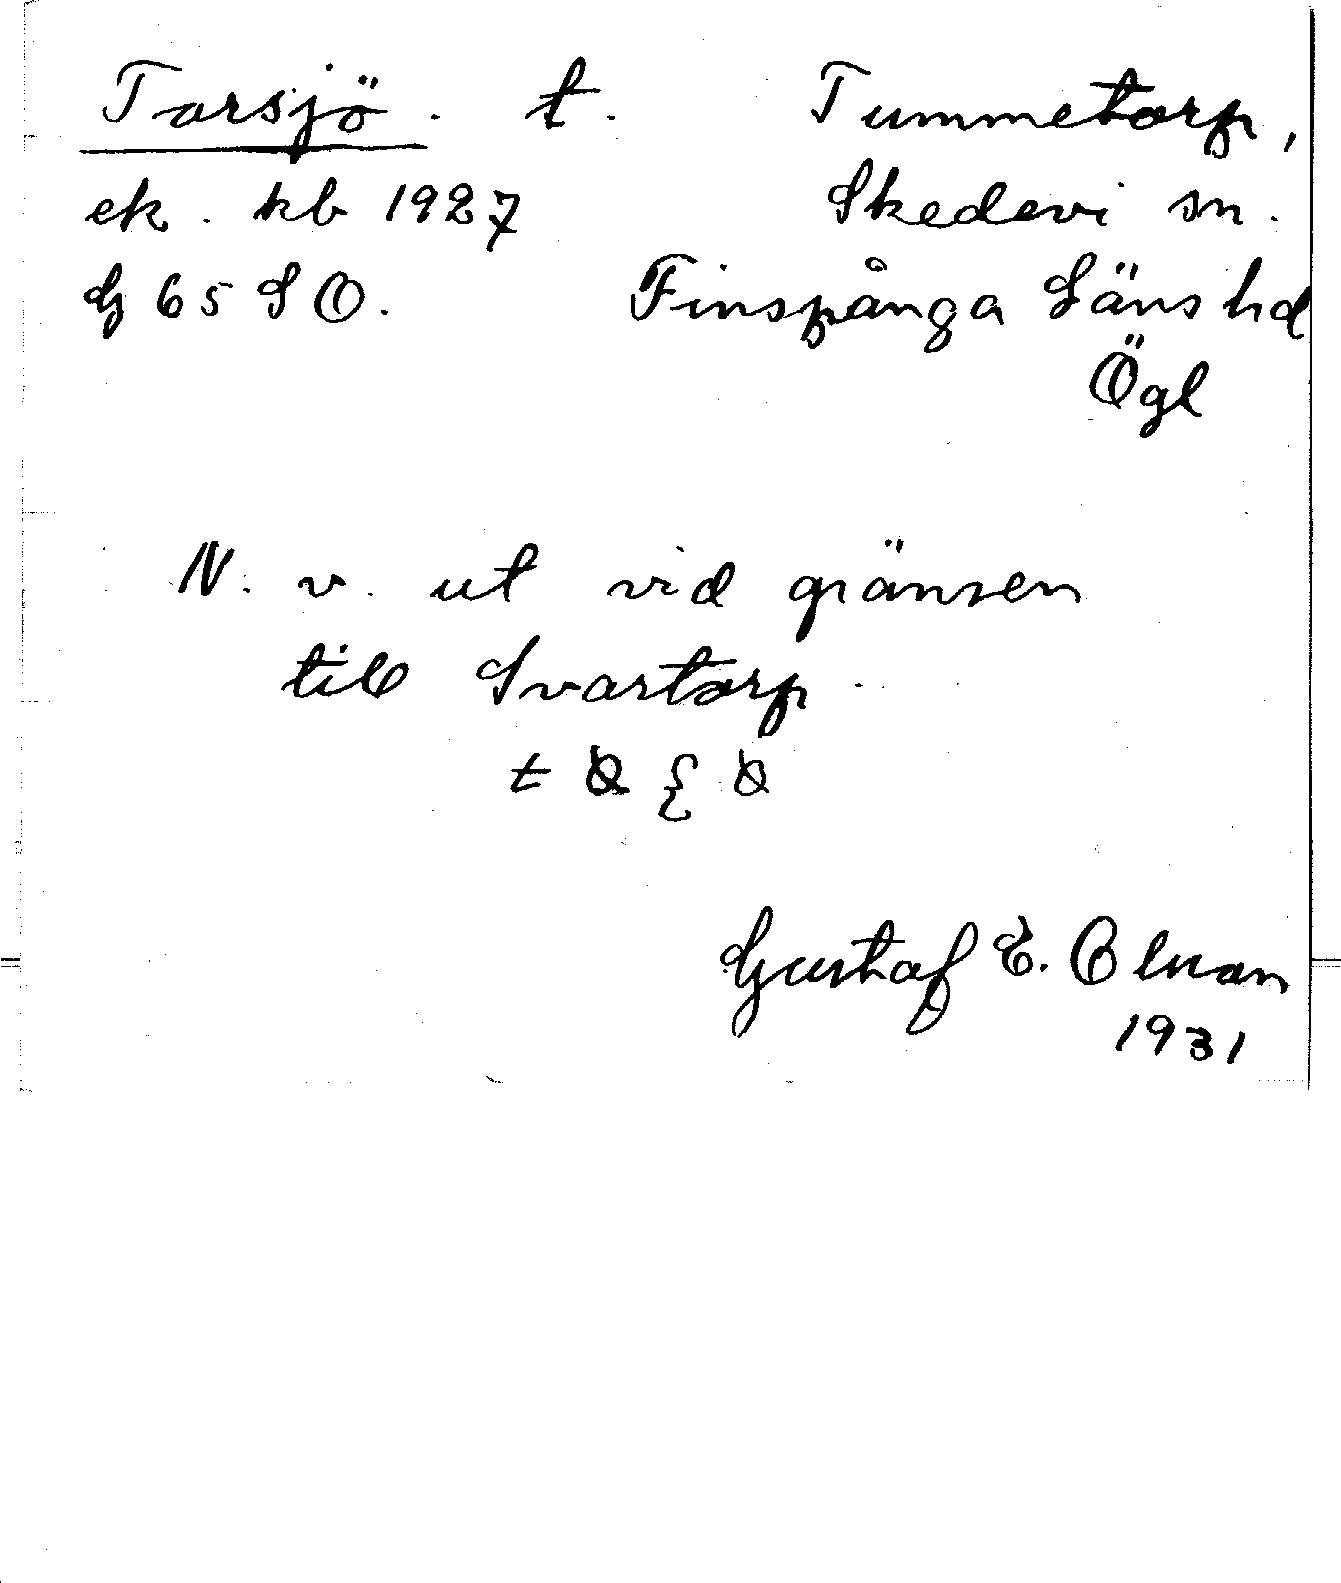 Torsjö. t. Tummetorp,
ek. kb 1927 Skedevi sn.
G 65 SO. Finspånga Läns hd
Ögl
N. v. ut vid gränsen
till Svartorp
Gustaf E. Olsson
1931